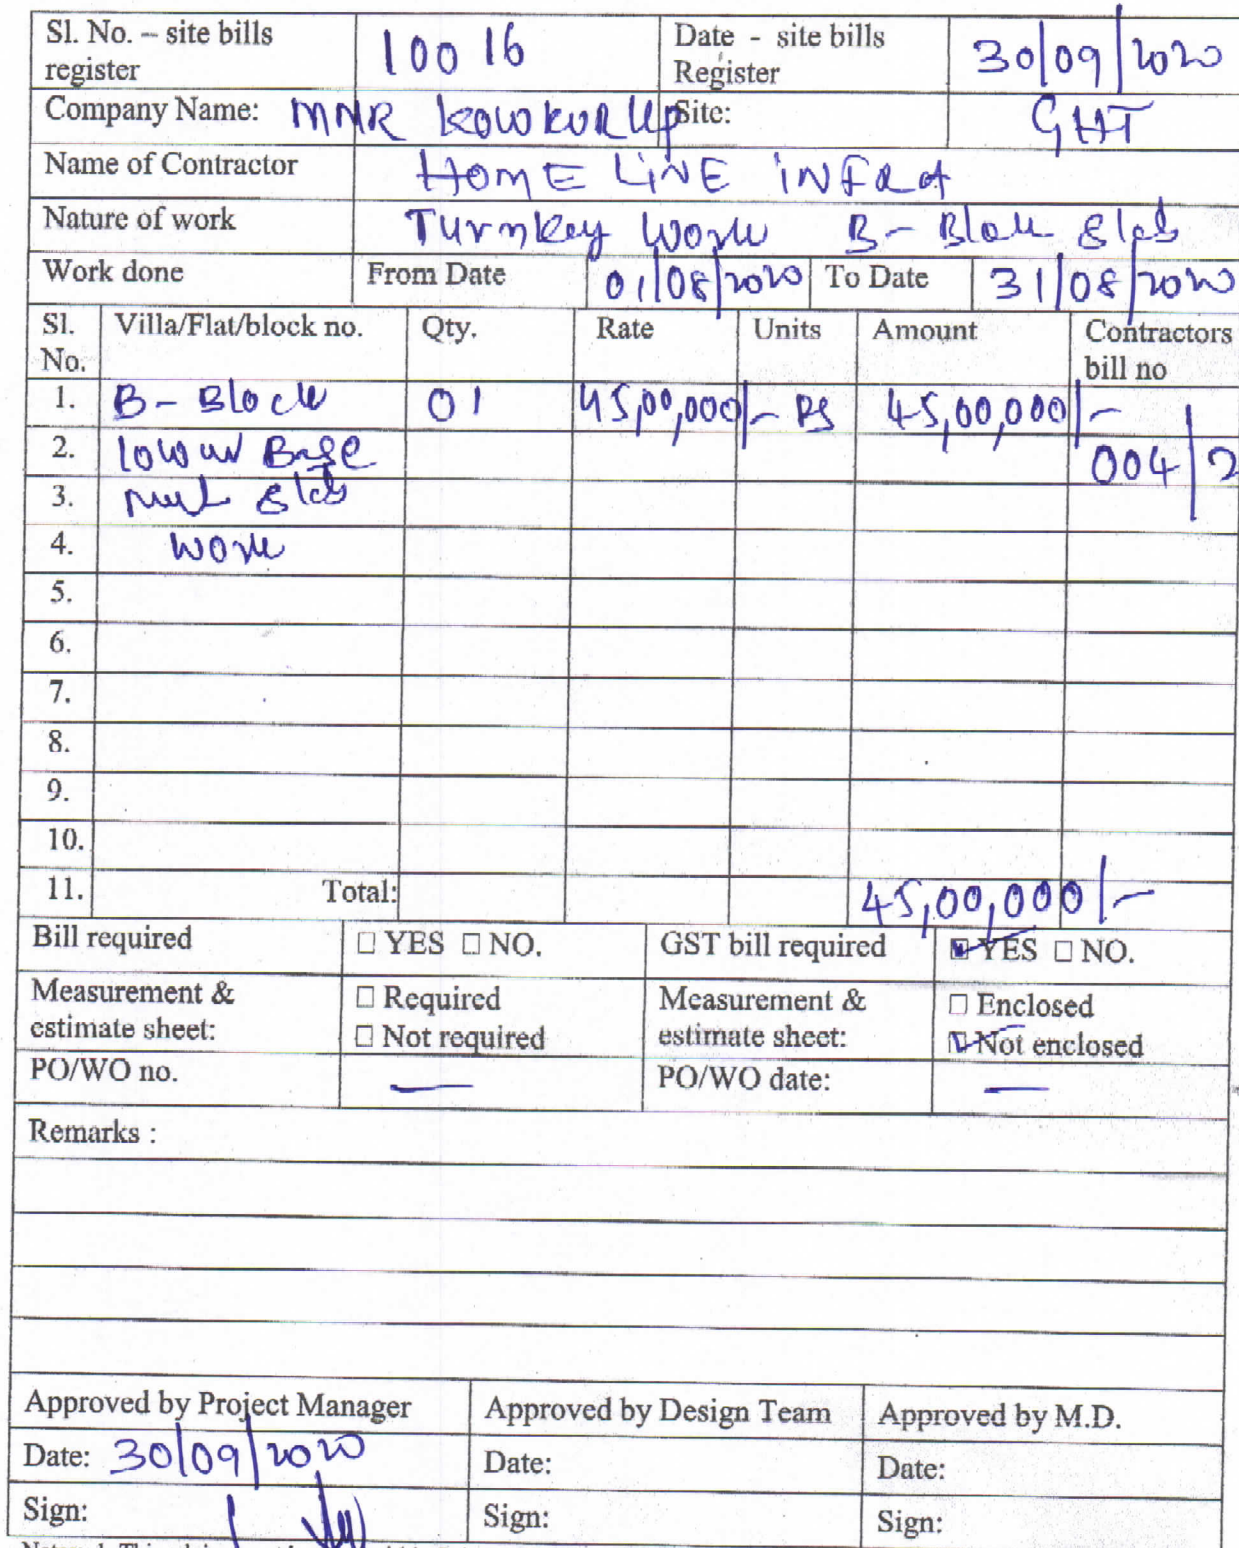 Sl. No. – site bills register 10016 Date - site bills Register 30/09/2020
Company Name: MNR KOWKUR LLP Site: GHT
Name of Contractor HOME LINE INFRA
Nature of work Turnkey Work B-Block Slab
Work done From Date 01/08/2020 To Date 31/08/2020
Sl. No. Villa/Flat/block no. Qty. Rate Units Amount Contractors bill no
1. B-Block 01 45,00,000/- RS 45,00,000/-
2. lower Base 004/2
3. ment Slab
4. work
5.
6.
7.
8.
9.
10.
11. Total: 45,00,000/-
Bill required □ YES □ NO. GST bill required ☑ YES □ NO.
Measurement & estimate sheet: □ Required □ Not required Measurement & estimate sheet: □ Enclosed ☑ Not enclosed
PO/WO no. — PO/WO date: —
Remarks :
Approved by Project Manager Approved by Design Team Approved by M.D.
Date: 30/09/2020 Date: Date:
Sign: Sign: Sign: